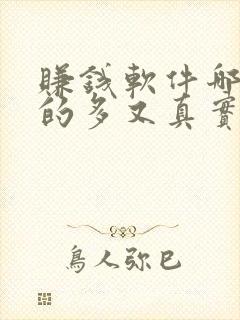 賺錢軟件哪
的多又真實
鳥人弥巳